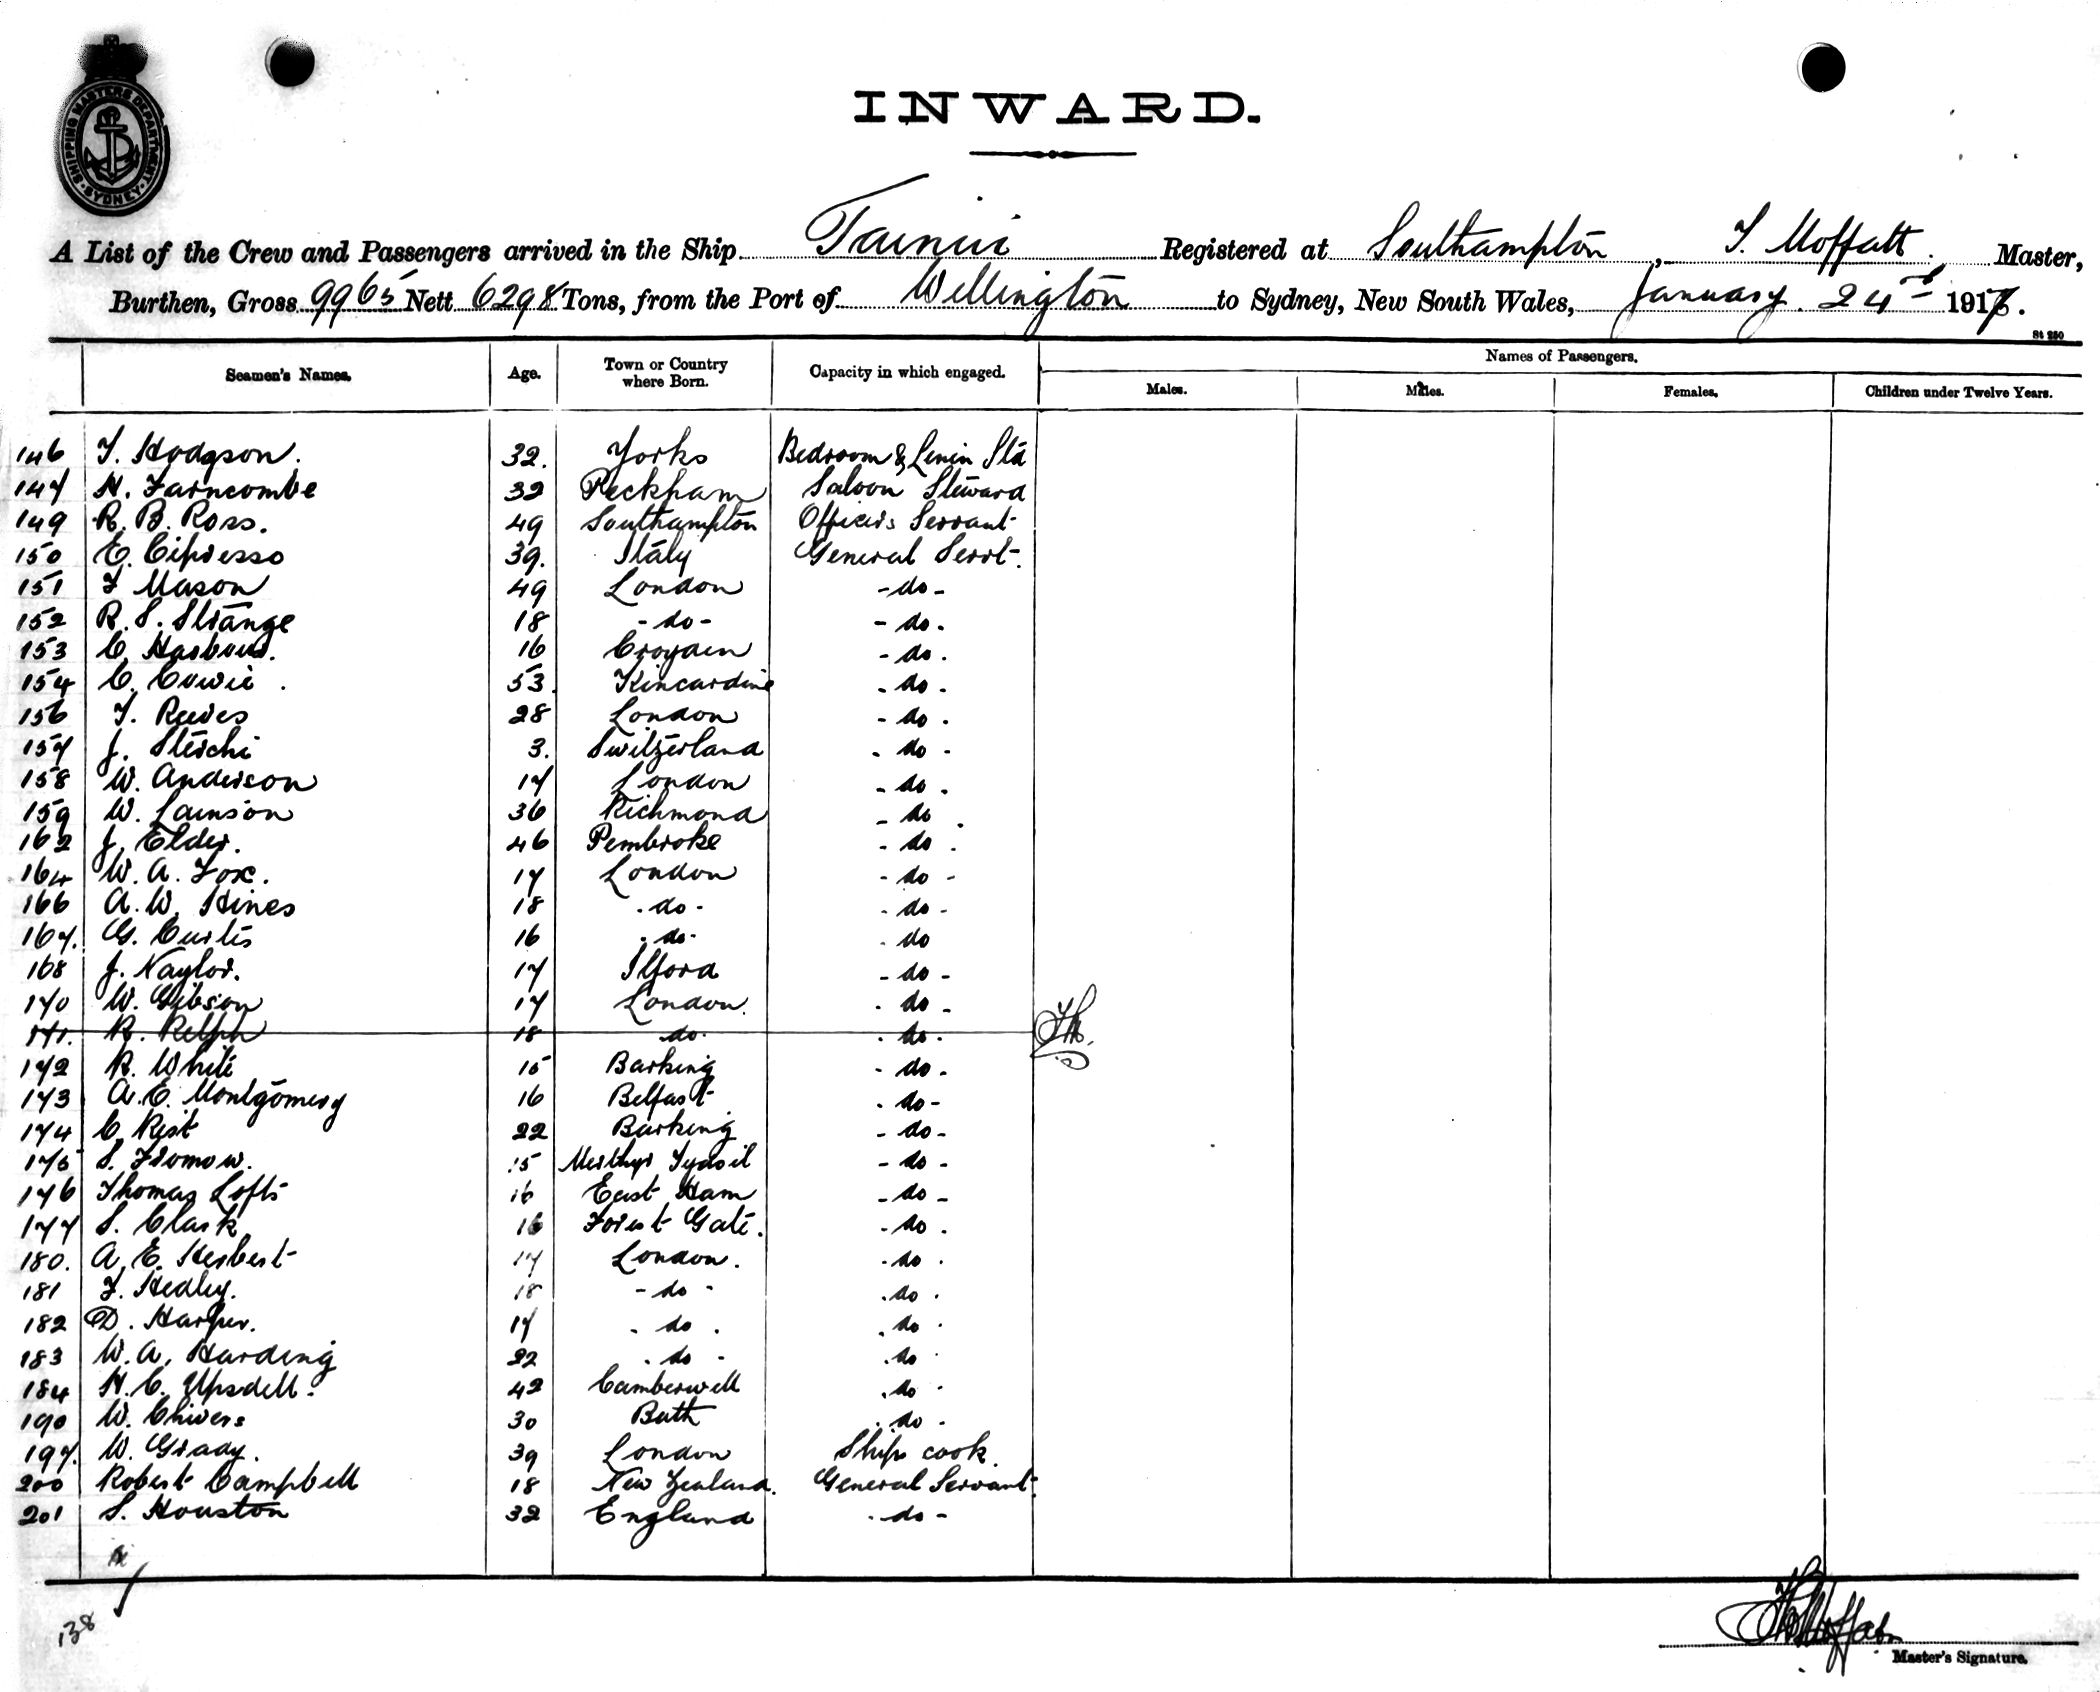 SHIPPING MASTERS DEPARTMENT
SYDNEY
INWARD.
A List of the Crew and Passengers arrived in the Ship Tainui Registered at Southampton, T. Moffatt. Master,
Burthen, Gross 9965 Nett 6298 Tons, from the Port of Wellington to Sydney, New South Wales, January 24th 1917.
St 250
Seamen's Names. Age. Town or Country where Born. Capacity in which engaged. Names of Passengers.
Males. Males. Females. Children under Twelve Years.
146 T. Hodgson. 32. Yorks Bedroom & Linin Std
147 H. Farncombe 32 Peckham Saloon Steward
149 R. B. Ross. 49 Southampton Officers Servant
150 E. Cipresso 39. Italy General Servt.
151 F Mason 49 London -do-
152 R. S. Strange 18 -do- -do.
153 C. Harbourd. 16 Croyden -do.
154 C. Cowie. 53. Kincardine -do.
156 T. Reeves 28 London -do.
157 J. Sterchi 3. Switzerland -do-
158 W. Anderson 17 London -do.
159 W. Lainson 36 Richmond -do.
162 J. Elder. 46 Pembroke -do.
164 W. A. Fox. 17 London -do-
166 A. W. Hines 18 .do. -do-
167. G. Curtis 16 .do. .do
168 J. Naylor. 17 Ilford -do-
170 W. Gibson 17 London. .do-
171. R. Relph 18 do. .do.
172 R. White 15 Barking -do.
173 A. E. Montgomery 16 Belfast .do-
174 C. Rist 22 Barking -do-
175 S. Fromow. 15 Merthyr Tydvil -do-
176 Thomas Lofts 16 East Ham -do-
177 S. Clark 16 Forest Gate. -do.
180. A. E. Herbert 17 London. .do.
181 F. Hedley. 18 -do- .do.
182 D. Harper. 17 .do. .do.
183 W. A. Harding 22 .do- .do.
184 H. C. Upsdell. 42 Camberwell .do.
190 W. Chivers 30 Bath .do-
197. W. Grady. 39 London Ships cook.
200 Robert Campbell 18 New Zealand. General Servant.
201 S. Houston 32 England .do-
138
Master's Signature.